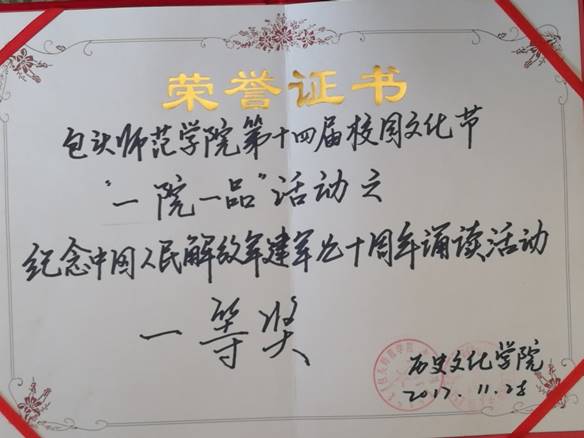 荣誉证书
包头师范学院第十四届校园文化节
"一院一品"活动之
纪念中国人民解放军建军九十周年诵读活动
一等奖
历史文化学院
2017.11.25